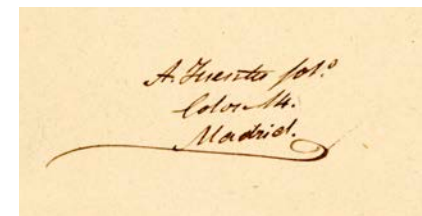 A. Fuentes fot.º
Colon 14.
Madrid.